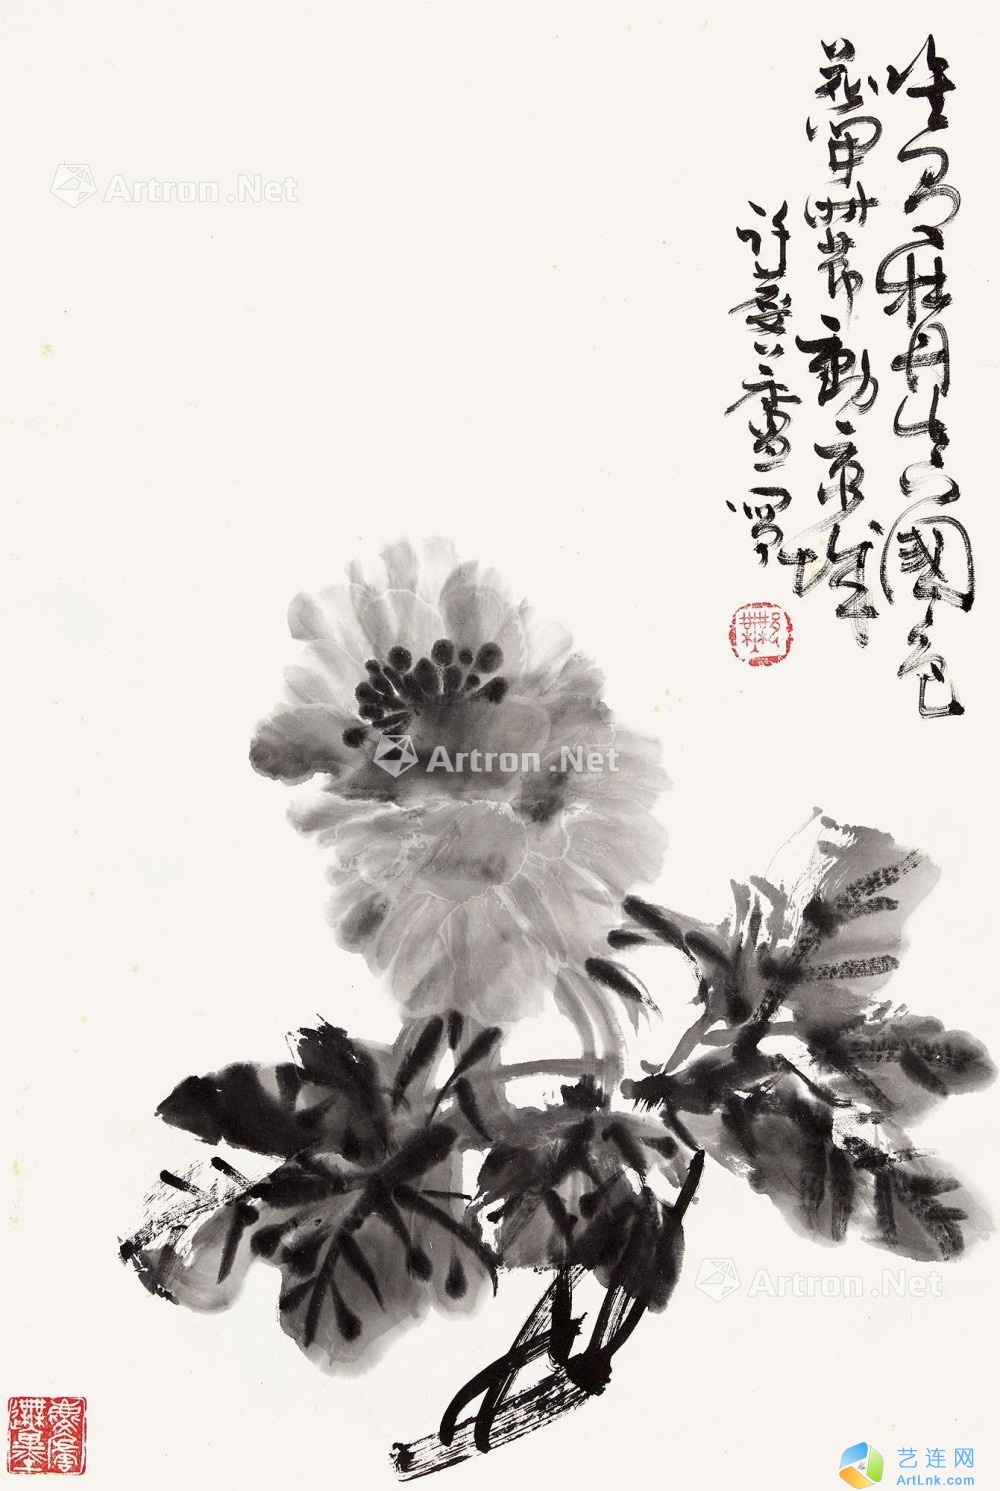 唯有牡丹真國色
花開時節動京城
許麐廬寫
Artron.Net
Artron.Net
Artron.Net
艺连网
ArtLnk.com